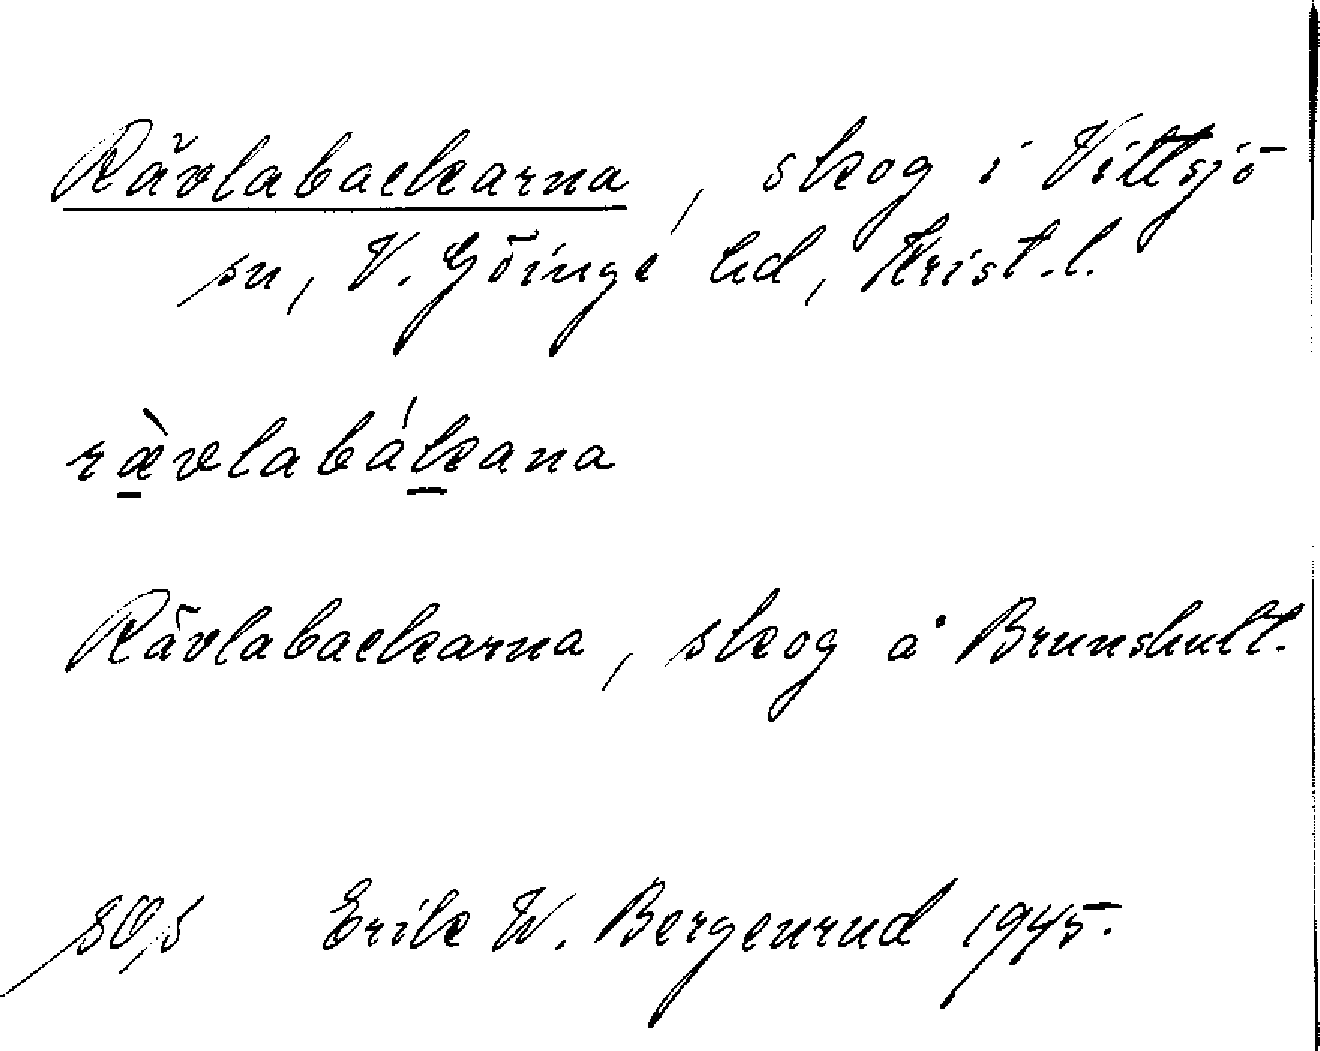 Rävlabackarna, skog i Vittsjö
sn, V. Göinge hd, Krist. l.
rævlabákana
Rävlabackarna, skog å Brunshult.
Erik W. Bergenrud 1945.